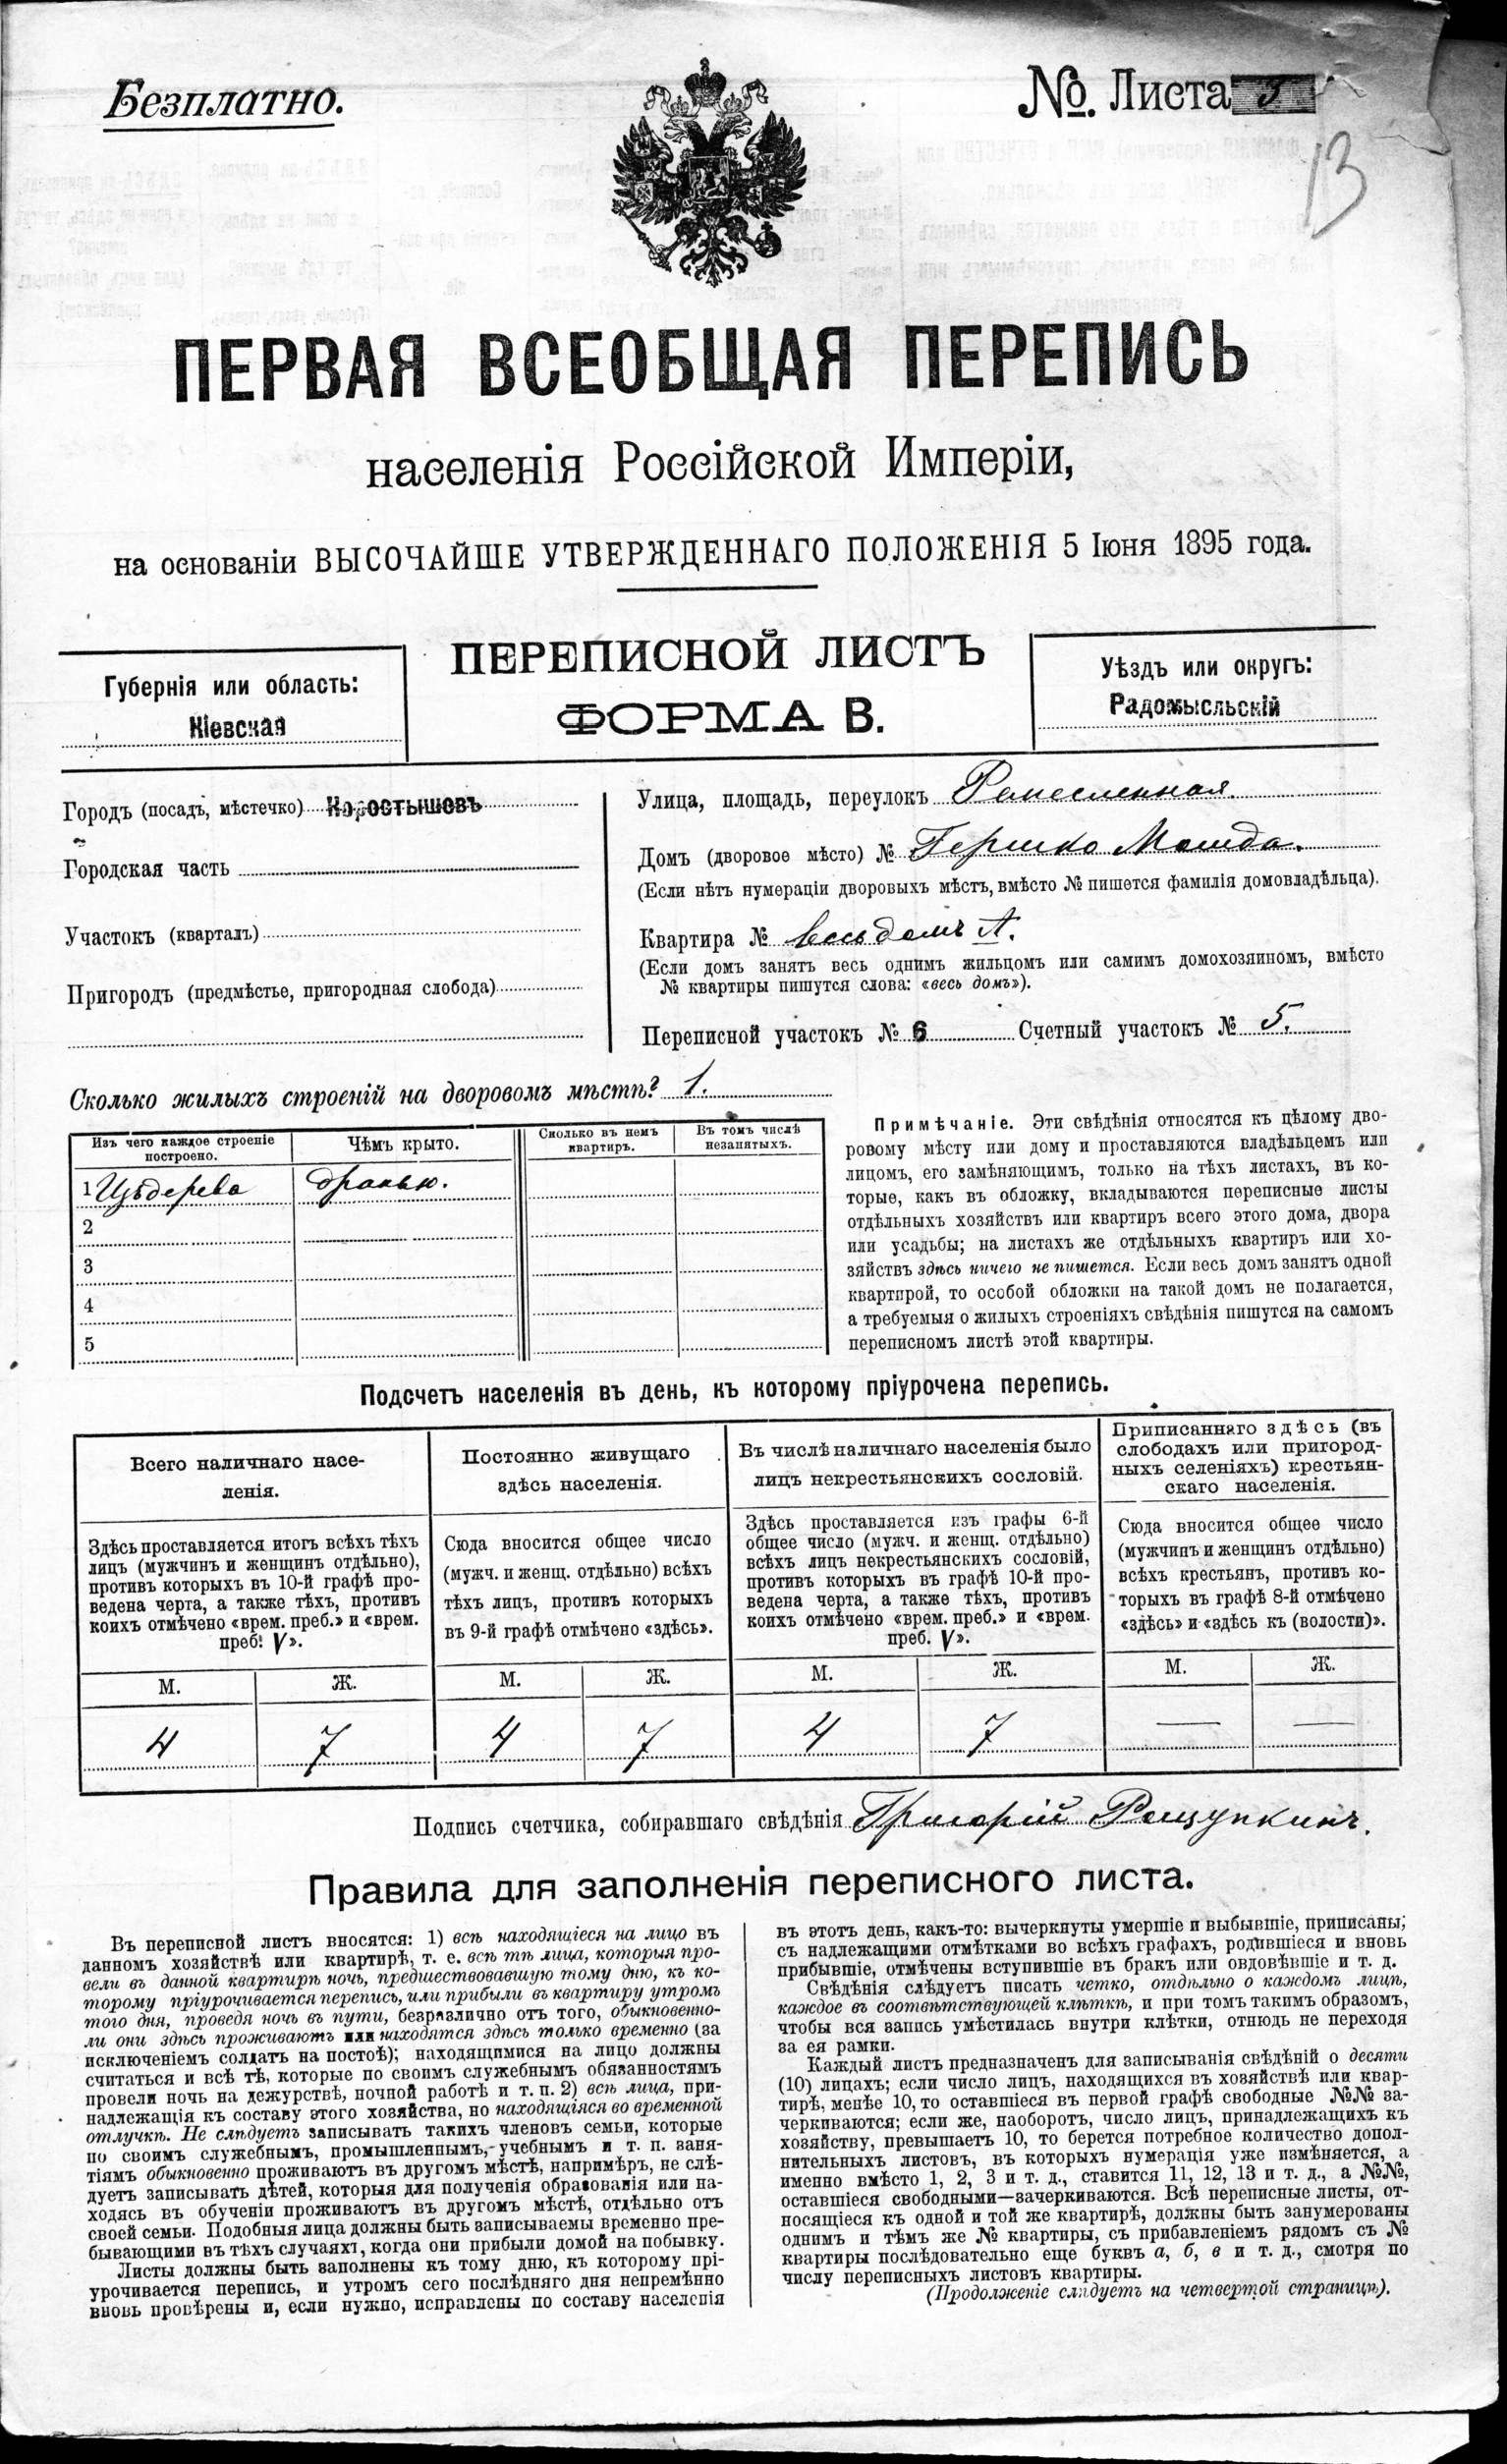 Безплатно.
№. Листа 3
13
ПЕРВАЯ ВСЕОБЩАЯ ПЕРЕПИСЬ
населенія Россійской Имперіи,
на основаніи ВЫСОЧАЙШЕ УТВЕРЖДЕННАГО ПОЛОЖЕНІЯ 5 Іюня 1895 года.
ПЕРЕПИСНОЙ ЛИСТЪ
ФОРМА В.
Губернія или область:
Кіевская
Уѣздъ или округъ:
Радомысльскій
Городъ (посадъ, мѣстечко) Коростышевъ
Городская часть
Участокъ (кварталъ)
Пригородъ (предмѣстье, пригородная слобода)
Улица, площадь, переулокъ Ремесленная.
Домъ (дворовое мѣсто) № Гершко
(Если нѣтъ нумераціи дворовыхъ мѣстъ, вмѣсто № пишется фамилія домовладѣльца).
Квартира № весь домъ А.
(Если домъ занятъ весь однимъ жильцомъ или самимъ домохозяиномъ, вмѣсто
№ квартиры пишутся слова: «весь домъ»).
Переписной участокъ № 6 Счетный участокъ № 5.
Сколько жилыхъ строеній на дворовомъ мѣстѣ? 1.
Изъ чего каждое строеніе
построено.
Чѣмъ крыто.
Сколько въ немъ
квартиръ.
Въ томъ числѣ
незанятыхъ.
1 Изъ дерева дранью.
2
3
4
5
Примѣчаніе. Эти свѣдѣнія относятся къ цѣлому дво-
ровому мѣсту или дому и проставляются владѣльцемъ или
лицомъ, его замѣняющимъ, только на тѣхъ листахъ, въ ко-
торые, какъ въ обложку, вкладываются переписные листы
отдѣльныхъ хозяйствъ или квартиръ всего этого дома, двора
или усадьбы; на листахъ же отдѣльныхъ квартиръ или хо-
зяйствъ здѣсь ничего не пишется. Если весь домъ занятъ одной
квартирой, то особой обложки на такой домъ не полагается,
а требуемыя о жилыхъ строеніяхъ свѣдѣнія пишутся на самомъ
переписномъ листѣ этой квартиры.
Подсчетъ населенія въ день, къ которому пріурочена перепись.
Всего наличнаго насе-
ленія.
Постоянно живущаго
здѣсь населенія.
Въ числѣ наличнаго населенія было
лицъ некрестьянскихъ сословій.
Приписаннаго здѣсь (въ
слободахъ или пригород-
ныхъ селеніяхъ) крестьян-
скаго населенія.
Здѣсь проставляется итогъ всѣхъ тѣхъ
лицъ (мужчинъ и женщинъ отдѣльно),
противъ которыхъ въ 10-й графѣ про-
ведена черта, а также тѣхъ, противъ
коихъ отмѣчено «врем. преб.» и «врем.
преб. V».
Сюда вносится общее число
(мужч. и женщ. отдѣльно) всѣхъ
тѣхъ лицъ, противъ которыхъ
въ 9-й графѣ отмѣчено «здѣсь».
Здѣсь проставляется изъ графы 6-й
общее число (мужч. и женщ. отдѣльно)
всѣхъ лицъ некрестьянскихъ сословій,
противъ которыхъ въ графѣ 10-й про-
ведена черта, а также тѣхъ, противъ
коихъ отмѣчено «врем. преб.» и «врем.
преб. V».
Сюда вносится общее число
(мужчинъ и женщинъ отдѣльно)
всѣхъ крестьян, противъ ко-
торыхъ въ графѣ 8-й отмѣчено
«здѣсь» и «здѣсь къ (волости)».
М. Ж. М. Ж. М. Ж. М. Ж.
4 7 4 7 4 7 — —
Подпись счетчика, собиравшаго свѣдѣнія Григорій Рощупкинъ.
Правила для заполненія переписного листа.
Въ переписной листъ вносятся: 1) всѣ находящіеся на лицо въ
данномъ хозяйствѣ или квартирѣ, т. е. всѣ тѣ лица, которыя про-
вели въ данной квартирѣ ночь, предшествовавшую тому дню, къ ко-
торому пріурочивается перепись, или прибыли въ квартиру утромъ
того дня, проведя ночь въ пути, безразлично отъ того, обыкновенно-
ли они здѣсь проживаютъ или находятся здѣсь только временно (за
исключеніемъ солдатъ на постоѣ); находящимися на лицо должны
считаться и всѣ тѣ, которые по своимъ служебнымъ обязанностямъ
провели ночь на дежурствѣ, ночной работѣ и т. п. 2) всѣ лица, при-
надлежащія къ составу этого хозяйства, но находящіяся во временной
отлучкѣ. Не слѣдуетъ записывать такихъ членовъ семьи, которые
по своимъ служебнымъ, промышленнымъ, учебнымъ и т. п. заня-
тіямъ обыкновенно проживаютъ въ другомъ мѣстѣ, напримѣръ, не слѣ-
дуетъ записывать дѣтей, которыя для полученія образованія или на-
ходясь въ обученіи проживаютъ въ другомъ мѣстѣ, отдѣльно отъ
своей семьи. Подобныя лица должны быть записываемы временно пре-
бывающими въ тѣхъ случаяхъ, когда они прибыли домой на побывку.
Листы должны быть заполнены къ тому дню, къ которому прі-
урочивается перепись, и утромъ сего послѣдняго дня непремѣнно
вновь провѣрены и, если нужно, исправлены по составу населенія
въ этотъ день, какъ-то: вычеркнуты умершіе и выбывшіе, приписаны;
съ надлежащими отмѣтками во всѣхъ графахъ, родившіеся и вновь
прибывшіе, отмѣчены вступившіе въ бракъ или овдовѣвшіе и т. д.
Свѣдѣнія слѣдуетъ писать четко, отдѣльно о каждомъ лицѣ,
каждое въ соотвѣтствующей клѣткѣ, и при томъ такимъ образомъ,
чтобы вся запись умѣстилась внутри клѣтки, отнюдь не переходя
за ея рамки.
Каждый листъ предназначенъ для записыванія свѣдѣній о десяти
(10) лицахъ; если число лицъ, находящихся въ хозяйствѣ или квар-
тирѣ, менѣе 10, то оставшіеся въ первой графѣ свободные №№ за-
черкиваются; если же, наоборотъ, число лицъ, принадлежащихъ къ
хозяйству, превышаетъ 10, то берется потребное количество допол-
нительныхъ листовъ, въ которыхъ нумерація уже измѣняется, а
именно вмѣсто 1, 2, 3 и т. д., ставится 11, 12, 13 и т. д., а №№,
оставшіеся свободными—зачеркиваются. Всѣ переписные листы, от-
носящіеся къ одной и той же квартирѣ, должны быть занумерованы
однимъ и тѣмъ же № квартиры, съ прибавленіемъ рядомъ съ №
квартиры послѣдовательно еще буквъ а, б, в и т. д., смотря по
числу переписныхъ листовъ квартиры.
(Продолженіе слѣдуетъ на четвертой страницѣ).